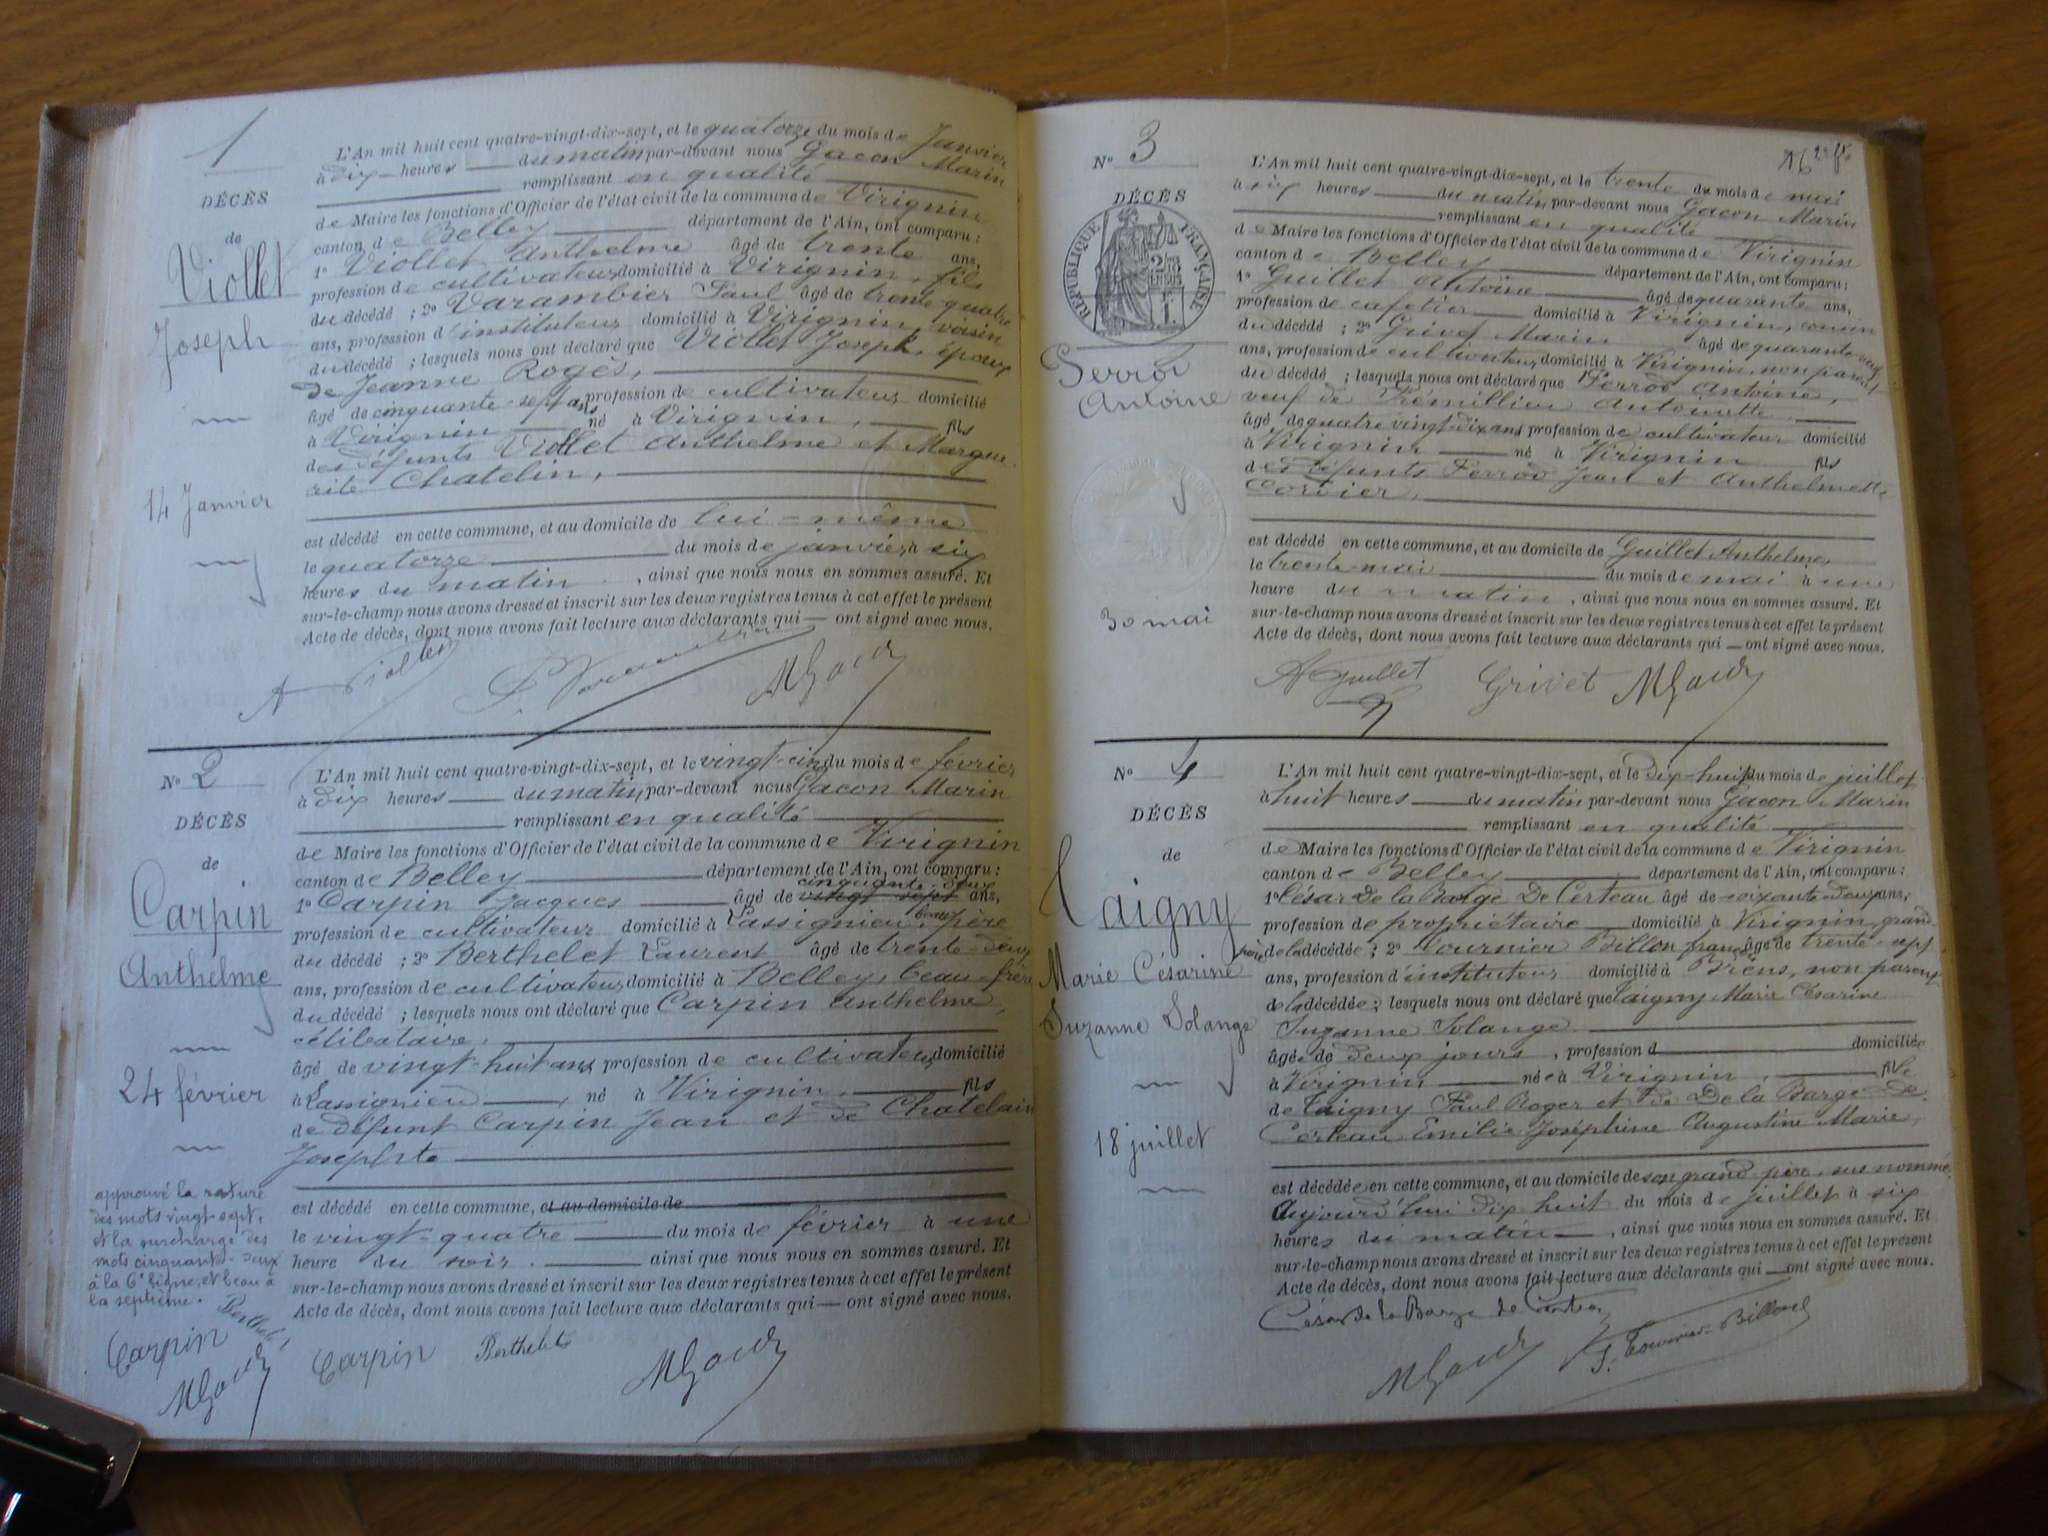 1
DÉCÈS
de
Viollet
Joseph
14 Janvier
L'An mil huit cent quatre-vingt-dix-sept, et le quatorze du mois de Janvier
à dix heures du matin par-devant nous Gacon Marin
remplissant en qualité
de Maire les fonctions d'Officier de l'état civil de la commune de Virignin
canton de Belley département de l'Ain, ont comparu :
1º Viollet Anthelme âgé de trente ans,
profession de cultivateur, domicilié à Virignin, fils
du décédé ; 2º Varambier Paul âgé de trente quatre
ans, profession d'instituteur domicilié à Virignin, voisin
du décédé ; lesquels nous ont déclaré que Viollet Joseph, époux
de Jeanne Rogès,
âgé de cinquante-sept ans profession de cultivateur domicilié
à Virignin né à Virignin, fils
des défunts Viollet Anthelme et Margue-
rite Chatelin,
est décédé en cette commune, et au domicile de lui-même
le quatorze du mois de janvier à six
heures du matin, ainsi que nous nous en sommes assuré. Et
sur-le-champ nous avons dressé et inscrit sur les deux registres tenus à cet effet le présent
Acte de décès, dont nous avons fait lecture aux déclarants qui — ont signé avec nous.
A Viollet
MGacon
Nº 2
DÉCÈS
de
Carpin
Anthelme
24 février
approuvé la rature
des mots vingt sept,
et la surcharge des
mots cinquante-deux
à la 6e ligne, et beau à
la septième.
Berthelet
Carpin
MGacon
L'An mil huit cent quatre-vingt-dix-sept, et le vingt-cinq du mois de février
à dix heures du matin, par-devant nous Gacon Marin
remplissant en qualité
de Maire les fonctions d'Officier de l'état civil de la commune de Virignin
canton de Belley département de l'Ain, ont comparu :
cinquante-deux
1º Carpin Jacques âgé de vingt sept ans,
profession de cultivateur domicilié à Lassignieu, beau père
du décédé ; 2º Berthelet Laurent âgé de trente-deux
ans, profession de cultivateur, domicilié à Belley, beau-frère
du décédé ; lesquels nous ont déclaré que Carpin Anthelme,
célibataire,
âgé de vingt-huit ans profession de cultivateur domicilié
à Lassignieu, né à Virignin, fils
de défunt Carpin Jean et de Chatelain
Josephte
est décédé en cette commune, et au domicile de
le vingt-quatre du mois de février à une
heure du soir. ainsi que nous nous en sommes assuré. Et
sur-le-champ nous avons dressé et inscrit sur les deux registres tenus à cet effet le présent
Acte de décès, dont nous avons fait lecture aux déclarants qui — ont signé avec nous.
Carpin Berthelet MGacon
16
Nº 3
DÉCÈS
RÉPUBLIQUE FRANÇAISE
Perrod
Antoine
30 mai
L'An mil huit cent quatre-vingt-dix-sept, et le trente du mois de mai
à six heures du matin, par-devant nous Gacon Marin
remplissant en qualité
de Maire les fonctions d'Officier de l'état civil de la commune de Virignin
canton de Belley département de l'Ain, ont comparu :
1º Guillet Antoine âgé de quarante ans,
profession de cafetier domicilié à Virignin, cousin
du décédé ; 2º Grivet Marin âgé de quarante
ans, profession de cultivateur, domicilié à Virignin, non parent
du décédé ; lesquels nous ont déclaré que Perrod Antoine,
veuf de Trémillieu Antoinette
âgé de quatre vingt-dix ans profession de cultivateur domicilié
à Virignin né à Virignin fils
des défunts Perrod Jean et Anthelmette
Cordier,
est décédé en cette commune, et au domicile de Guillet Anthelme,
le trente mai du mois de mai à une
heure du matin, ainsi que nous nous en sommes assuré. Et
sur-le-champ nous avons dressé et inscrit sur les deux registres tenus à cet effet le présent
Acte de décès, dont nous avons fait lecture aux déclarants qui — ont signé avec nous.
A Guillet Grivet MGacon
Nº 4
DÉCÈS
de
Taigny
Marie Césarine
Suzanne Solange
18 juillet
L'An mil huit cent quatre-vingt-dix-sept, et le Dix-huit du mois de juillet
à huit heures du matin par-devant nous Gacon Marin
remplissant en qualité
de Maire les fonctions d'Officier de l'état civil de la commune de Virignin
canton de Belley département de l'Ain, ont comparu :
1º César De la Barge De Certeau âgé de soixante-deux ans,
profession de propriétaire domicilié à Virignin, grand-
père de la décédée ; 2º Tournier Billon âgé de trente-sept
ans, profession d'instituteur domicilié à Brens, non parent
de la décédée ; lesquels nous ont déclaré que Taigny Marie Césarine
Suzanne Solange
âgée de deux jours, profession d domiciliée
à Virignin née à Virignin, fille
de Taigny Paul Roger et de De la Barge De
Certeau Emilie Joséphine Augustine Marie,
est décédée en cette commune, et au domicile de son grand père, sus nommé,
Aujourd'hui dix huit du mois de juillet à six
heures du matin, ainsi que nous nous en sommes assuré. Et
sur-le-champ nous avons dressé et inscrit sur les deux registres tenus à cet effet le présent
Acte de décès, dont nous avons fait lecture aux déclarants qui — ont signé avec nous.
César de la Barge de Certeau
MGacon
Tournier-Billon